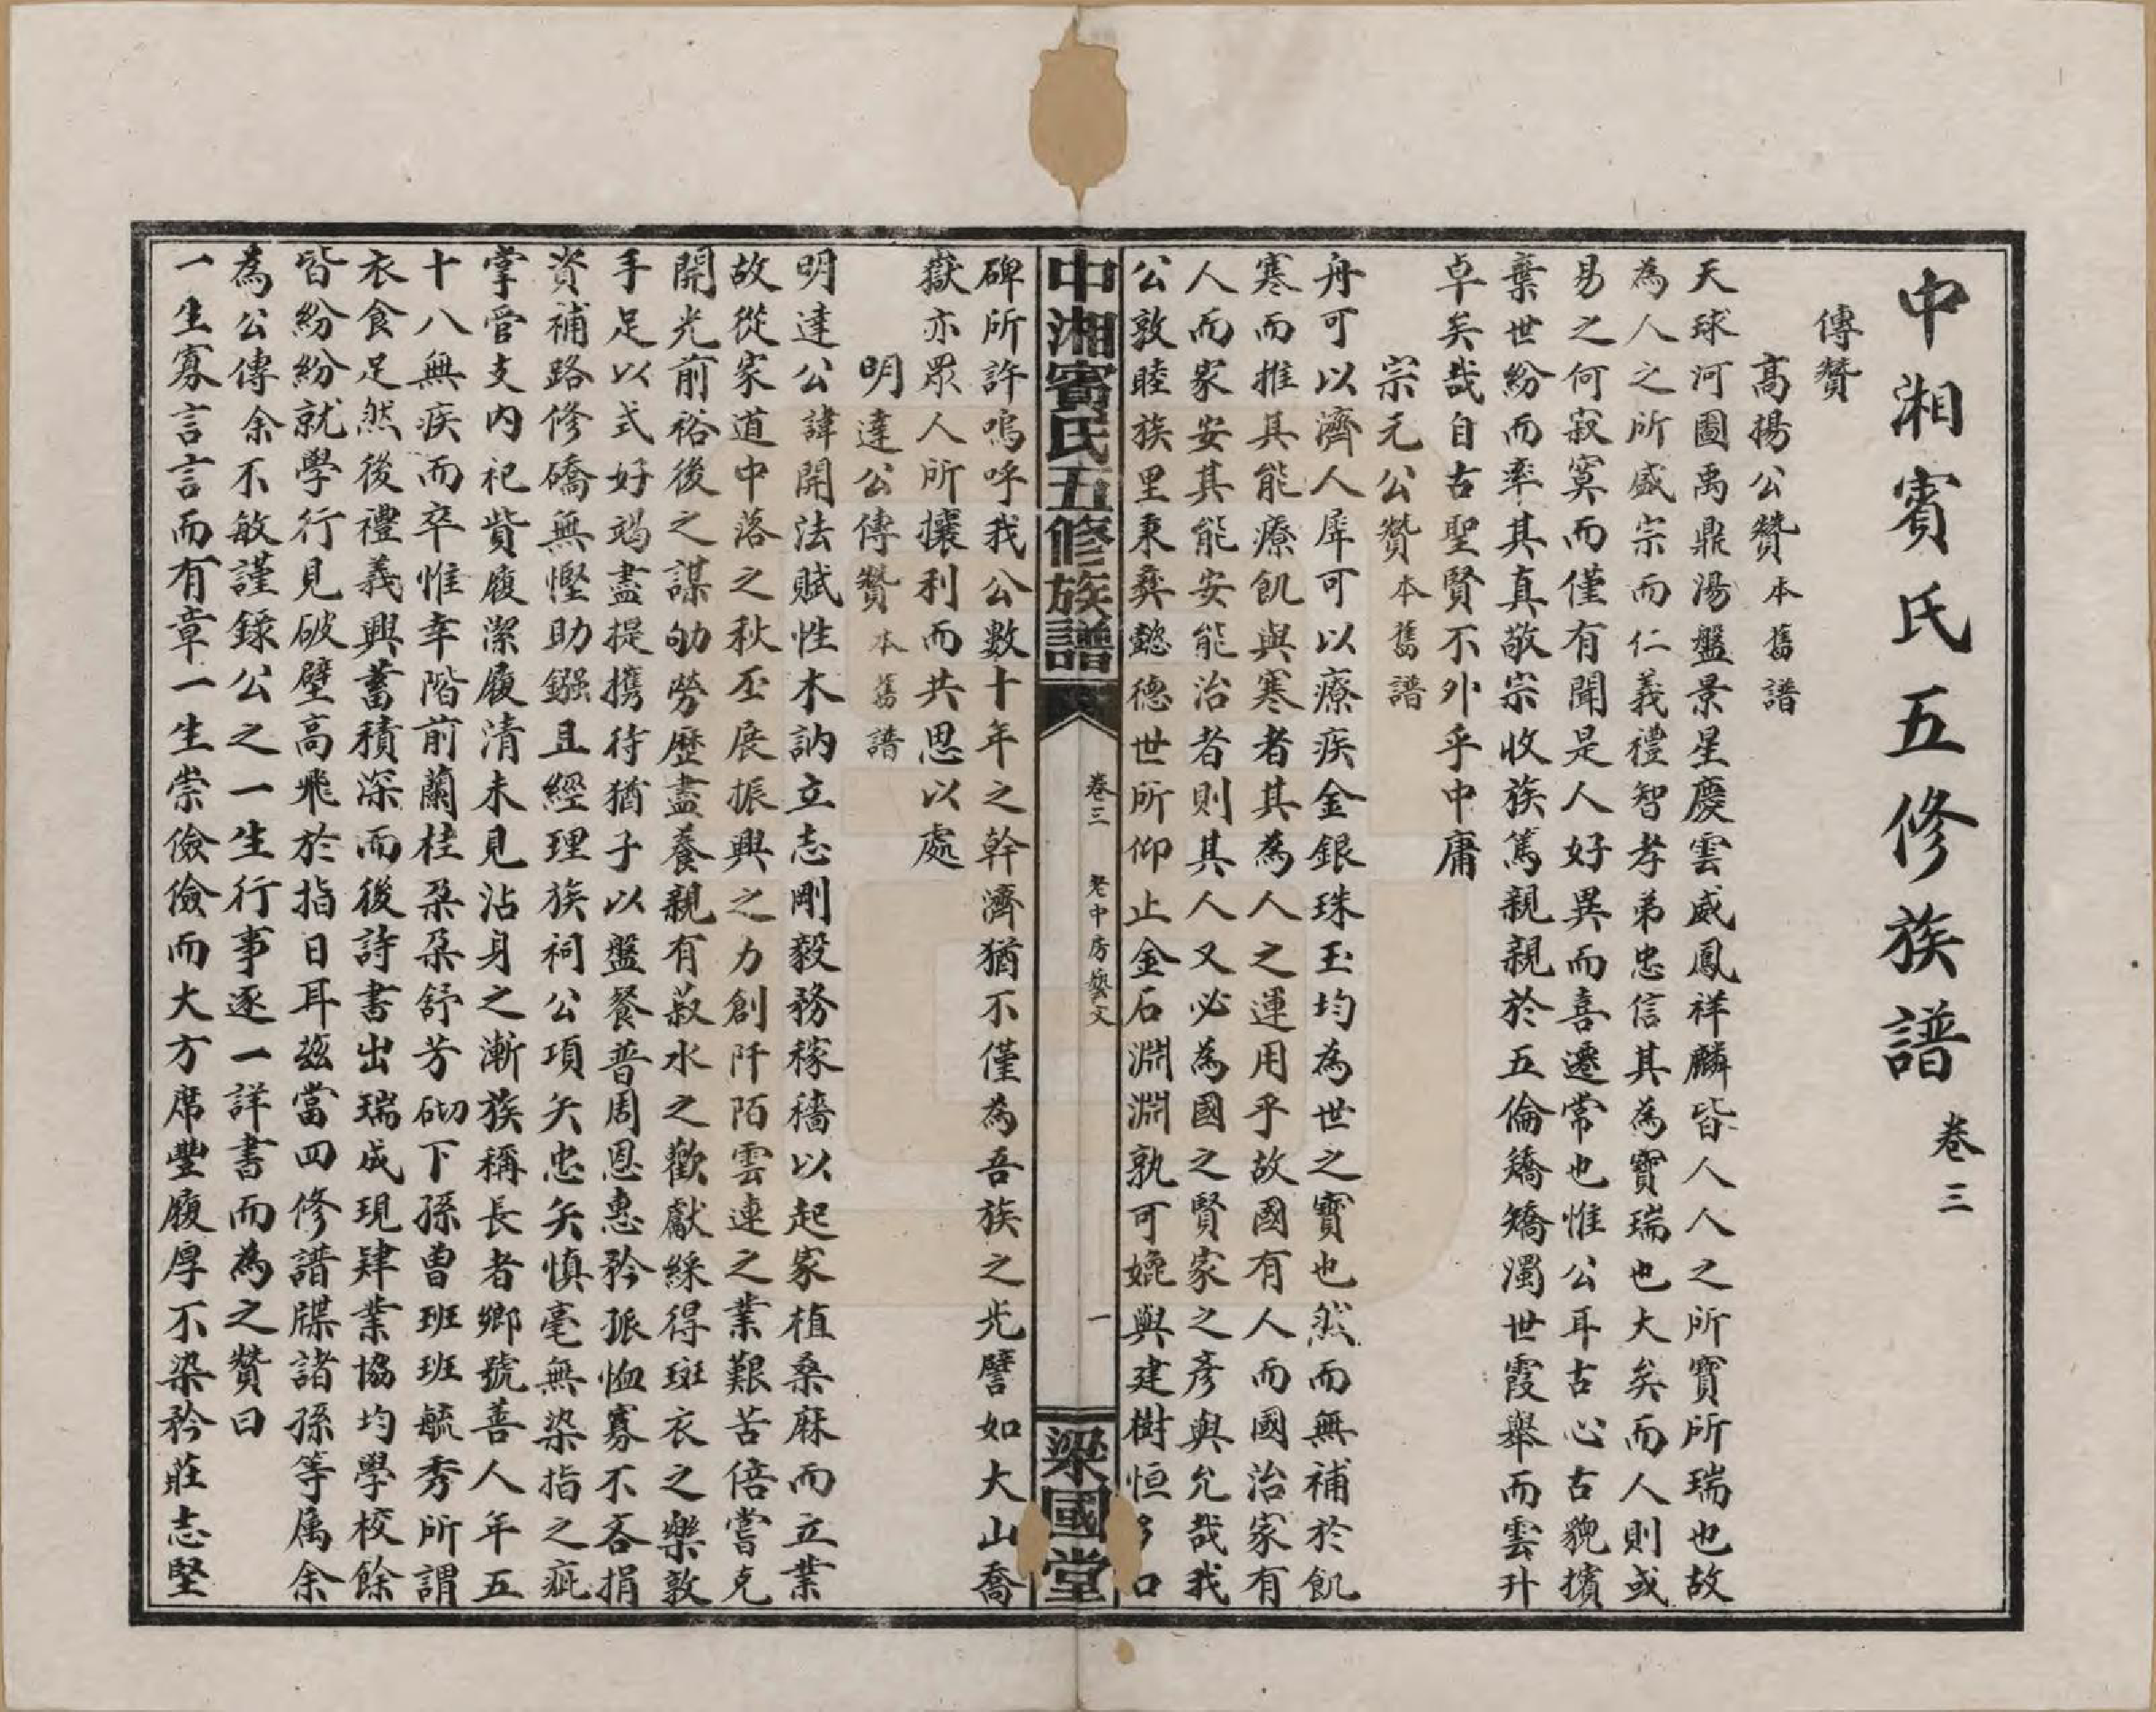 中湘賓氏五修族譜 卷三
傳贊
高揚公贊 本舊譜
天球河圖禹鼎湯盤景星慶雲威鳳祥麟皆人人之所寶所瑞也故
為人之所盛宗而仁義禮智孝弟忠信其為寶瑞也大矣而人則或
易之何寂寞而僅有聞是人好異而喜遷常也惟公耳古心古貌擯
棄世紛而率其真敬宗收族篤親親於五倫矯矯濁世霞舉而雲升
卓矣哉自古聖賢不外乎中庸
宗元公贊 本舊譜
舟可以濟人犀可以療疾金銀珠玉均為世之寶也然而無補於飢
寒而推其能療飢與寒者其為人之運用乎故國有人而國治家有
人而家安其能安能治者則其人又必為國之賢家之彥與允哉我
公敦睦族里秉彝懿德世所仰止金石淵淵孰可媲與建樹恒 口
中湘賓氏五修族譜 卷三 老中房藝文 一 梁國堂
碑所許嗚呼我公數十年之幹濟猶不僅為吾族之光譬如大山喬
嶽亦眾人所攘利而共思以處
明達公傳贊 本舊譜
明達公諱開法賦性木訥立志剛毅務稼穡以起家植桑麻而立業
故從家道中落之秋丕展振興之力創阡陌雲連之業艱苦倍嘗克
開光前裕後之謀劬勞歷盡養親有菽水之歡獻綵得斑衣之樂敦
手足以式好竭盡提攜待猶子以盤餐普周恩惠矜孤恤寡不吝捐
資補路修礄無慳助鏹且經理族祠公項矢忠矢慎毫無染指之疵
掌管支內祀貲履潔履清未見沾身之漸族稱長者鄉號善人年五
十八無疾而卒惟幸階前蘭桂朵朵舒芳砌下孫曾班班毓秀所謂
衣食足然後禮義興蓄積深而後詩書出瑞成現肄業協均學校餘
皆紛紛就學行見破壁高飛於指日耳茲當四修譜牒諸孫等属余
為公傳余不敏謹錄公之一生行事逐一詳書而為之贊曰
一生寡言言而有章一生崇儉儉而大方席豐履厚不染矜莊志堅